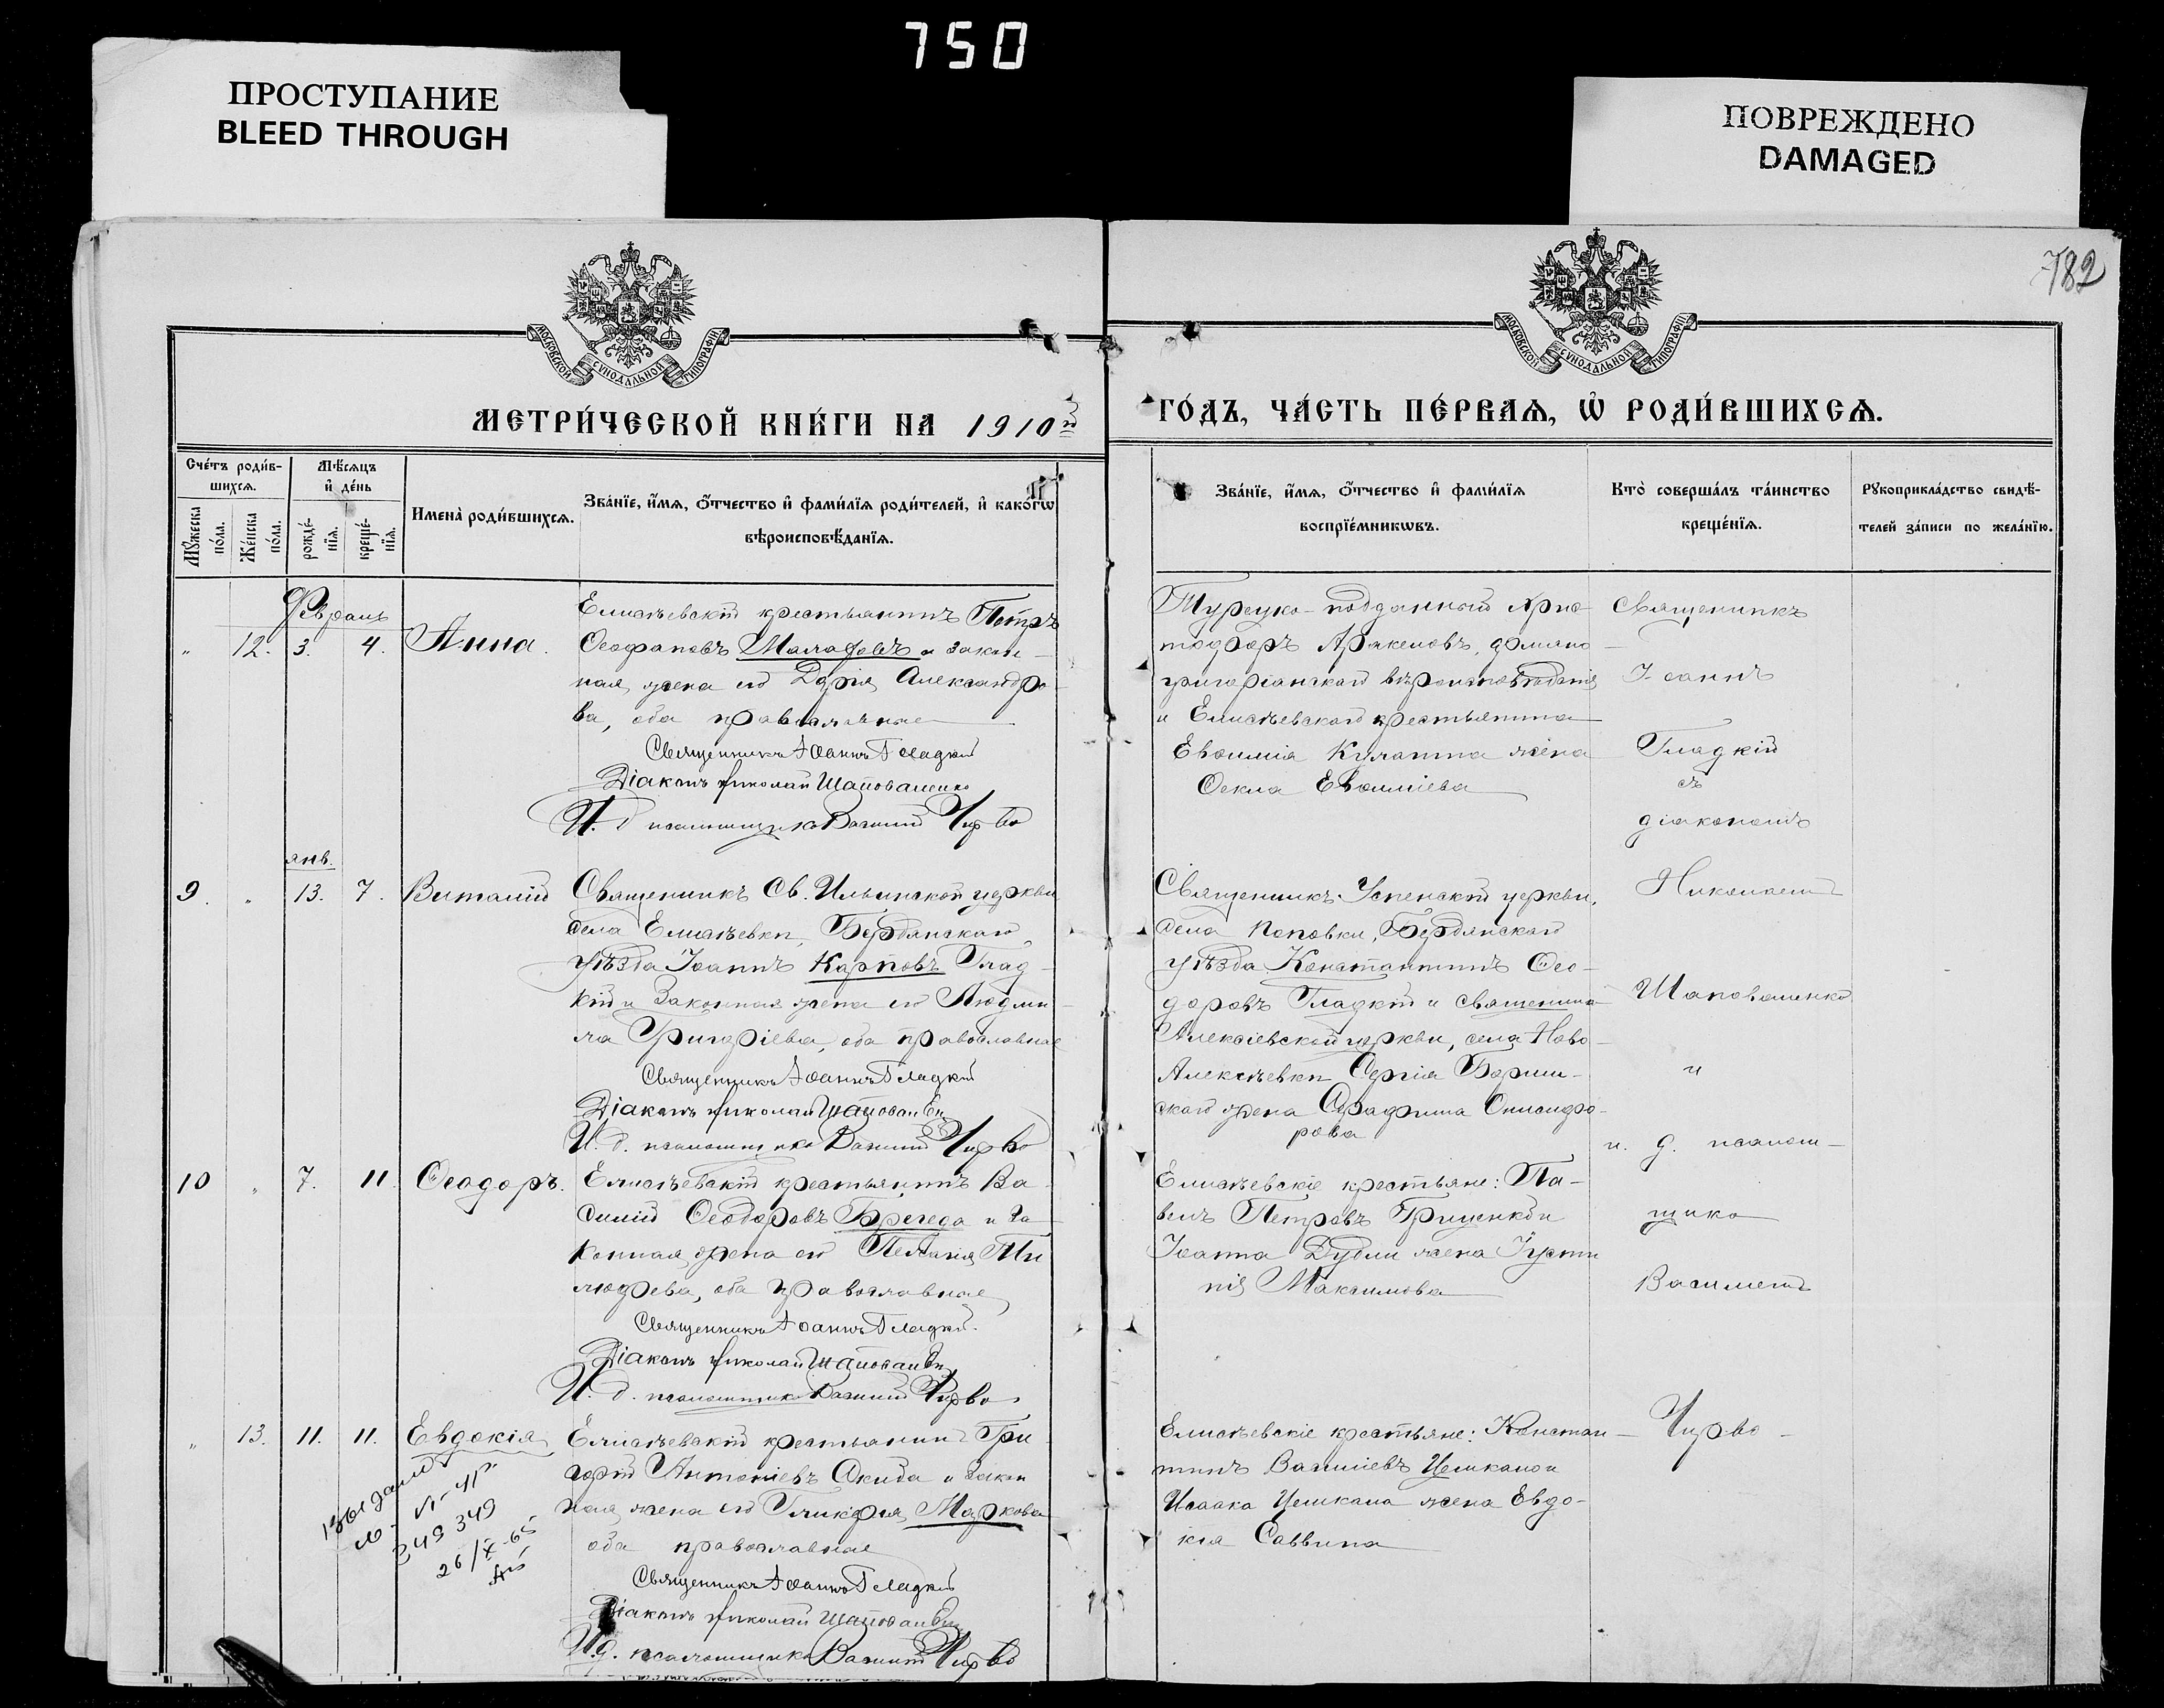 750
ПРОСТУПАНИЕ
BLEED THROUGH
ПОВРЕЖДЕНО
DAMAGED
782
МОСКОВСКОЙ СѴНОДАЛЬНОЙ ТИПОГРАФІИ
МОСКОВСКОЙ СѴНОДАЛЬНОЙ ТИПОГРАФІИ
МЕТРИ́ЧЕСКОЙ КНИ́ГИ НА 1910й
ГО́ДЪ, ЧА́СТЬ ПЕ́РВАѦ, Ѡ҆ РОДИ́ВШИХСѦ.
Сче́тъ роди́в-
шихсѧ.
Мꙋ́жеска по́ла.
Же́нска по́ла.
Мѣ́сѧцъ
и҆ де́нь
рожде́-
нїѧ.
креще́-
нїѧ.
Имена̀ роди́вшихсѧ.
Зва́нїе, и҆́мѧ, ѻ҆́тчество и҆ фами́лїѧ роди́телей, и҆ како́гѡ
вѣроисповѣ́данїѧ.
Зва́нїе, и҆́мѧ, ѻ҆́тчество и҆ фами́лїѧ
воспрїе́мникѡвъ.
Кто̀ соверша́лъ та́инство
креще́нїѧ.
Рꙋкоприкла́дство свидѣ́-
телей за́писи по жела́нїю.
Февраль
" 12. 3. 4. Анна.
Елисѣевскій крестьянинъ Петръ
Ѳеофановъ Малафовъ и закон-
ная жена его Дарія Александро-
ва, оба православные
Священникъ Іоаннъ Гладкій
Діаконъ Николай Шаповаленко
И. д. псаломщика Василій Чирво
Турецко-подданный Хрис-
тофоръ Аракеловъ, армяно-
григоріанскаго вѣроисповѣданія
и Елисѣевскаго крестьянина
Евѳимія Кулатта жена
Ѳекла Евѳиміева
Священникъ
Іоаннъ
Гладкій
съ
діакономъ
Николаемъ
Шаповаленко
и
и. д. псалом-
щика
Василіемъ
Чирво -
янв.
9. " 13. 7. Виталій
Священникъ Св. Ильинской церкви
села Елисѣевки, Бердянскаго
уѣзда Іоаннъ Карповъ Глад-
кій и законная жена его Людми-
ла Григоріева, оба православные
Священникъ Іоаннъ Гладкій
Діаконъ Николай Шаповаленко
И. д. псаломщика Василій Чирво
Священникъ Успенской церкви,
села Поповки, Бердянскаго
уѣзда Константинъ Ѳео-
доровъ Гладкій и священника
Алексіевской церкви, села Ново-
Алексѣевки Сергія
жена Серафима Онисифо-
рова
10 " 7. 11. Ѳеодоръ.
Елисѣевскій крестьянинъ Ва-
силій Ѳеодоровъ Брегеда и за-
конная жена его Пелагія Ти-
моѳеева, оба православные
Священникъ Іоаннъ Гладкій.
Діаконъ Николай Шаповаленко
И. д. псаломщика Василій Чирво
Елисѣевскіе крестьяне: Па-
велъ Петровъ Гриценко и
Іоанна жена Іусти-
нія Максимова
" 13. 11. 11. Евдокія
Елисѣевскій крестьянинъ Гри-
горій Антоніевъ Скида и закон-
ная жена его Гликерія Маркова
оба православные
Священникъ Іоаннъ Гладкій
Діаконъ Николай Шаповаленко
И. д. псаломщика Василій Чирво
Елисѣевскіе крестьяне: Констан-
тинъ Василіевъ и
Исаака жена Евдо-
кія Саввина
349 349
26/X-65